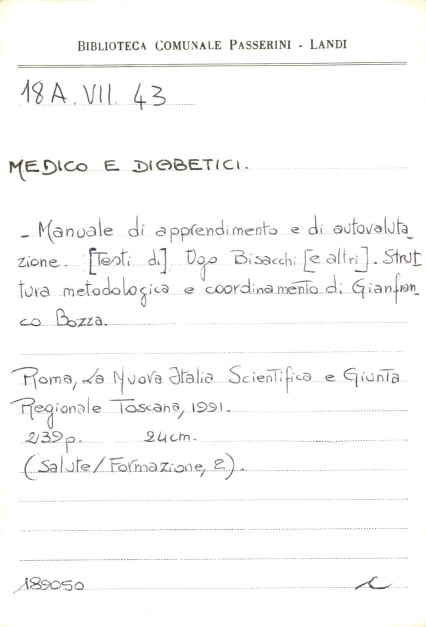 BIBLIOTECA COMUNALE PASSERINI - LANDI
18 A. VII. 43
MEDICO E DIABETICI.
- Manuale di apprendimento e di autovaluta_
zione. [Testi di] Ugo Bisacchi [e altri]. Strut
tura metodologica e coordinamento di Gianfran_
co Bozza.
Roma, La Nuova Italia Scientifica e Giunta
Regionale Toscana, 1991.
239 p. 24 cm.
(Salute/Formazione, 2).
189050